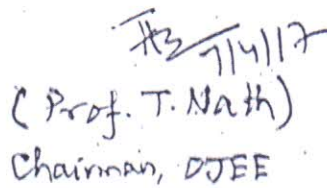 7/4/17
(Prof. T. Nath)
Chairman, OJEE